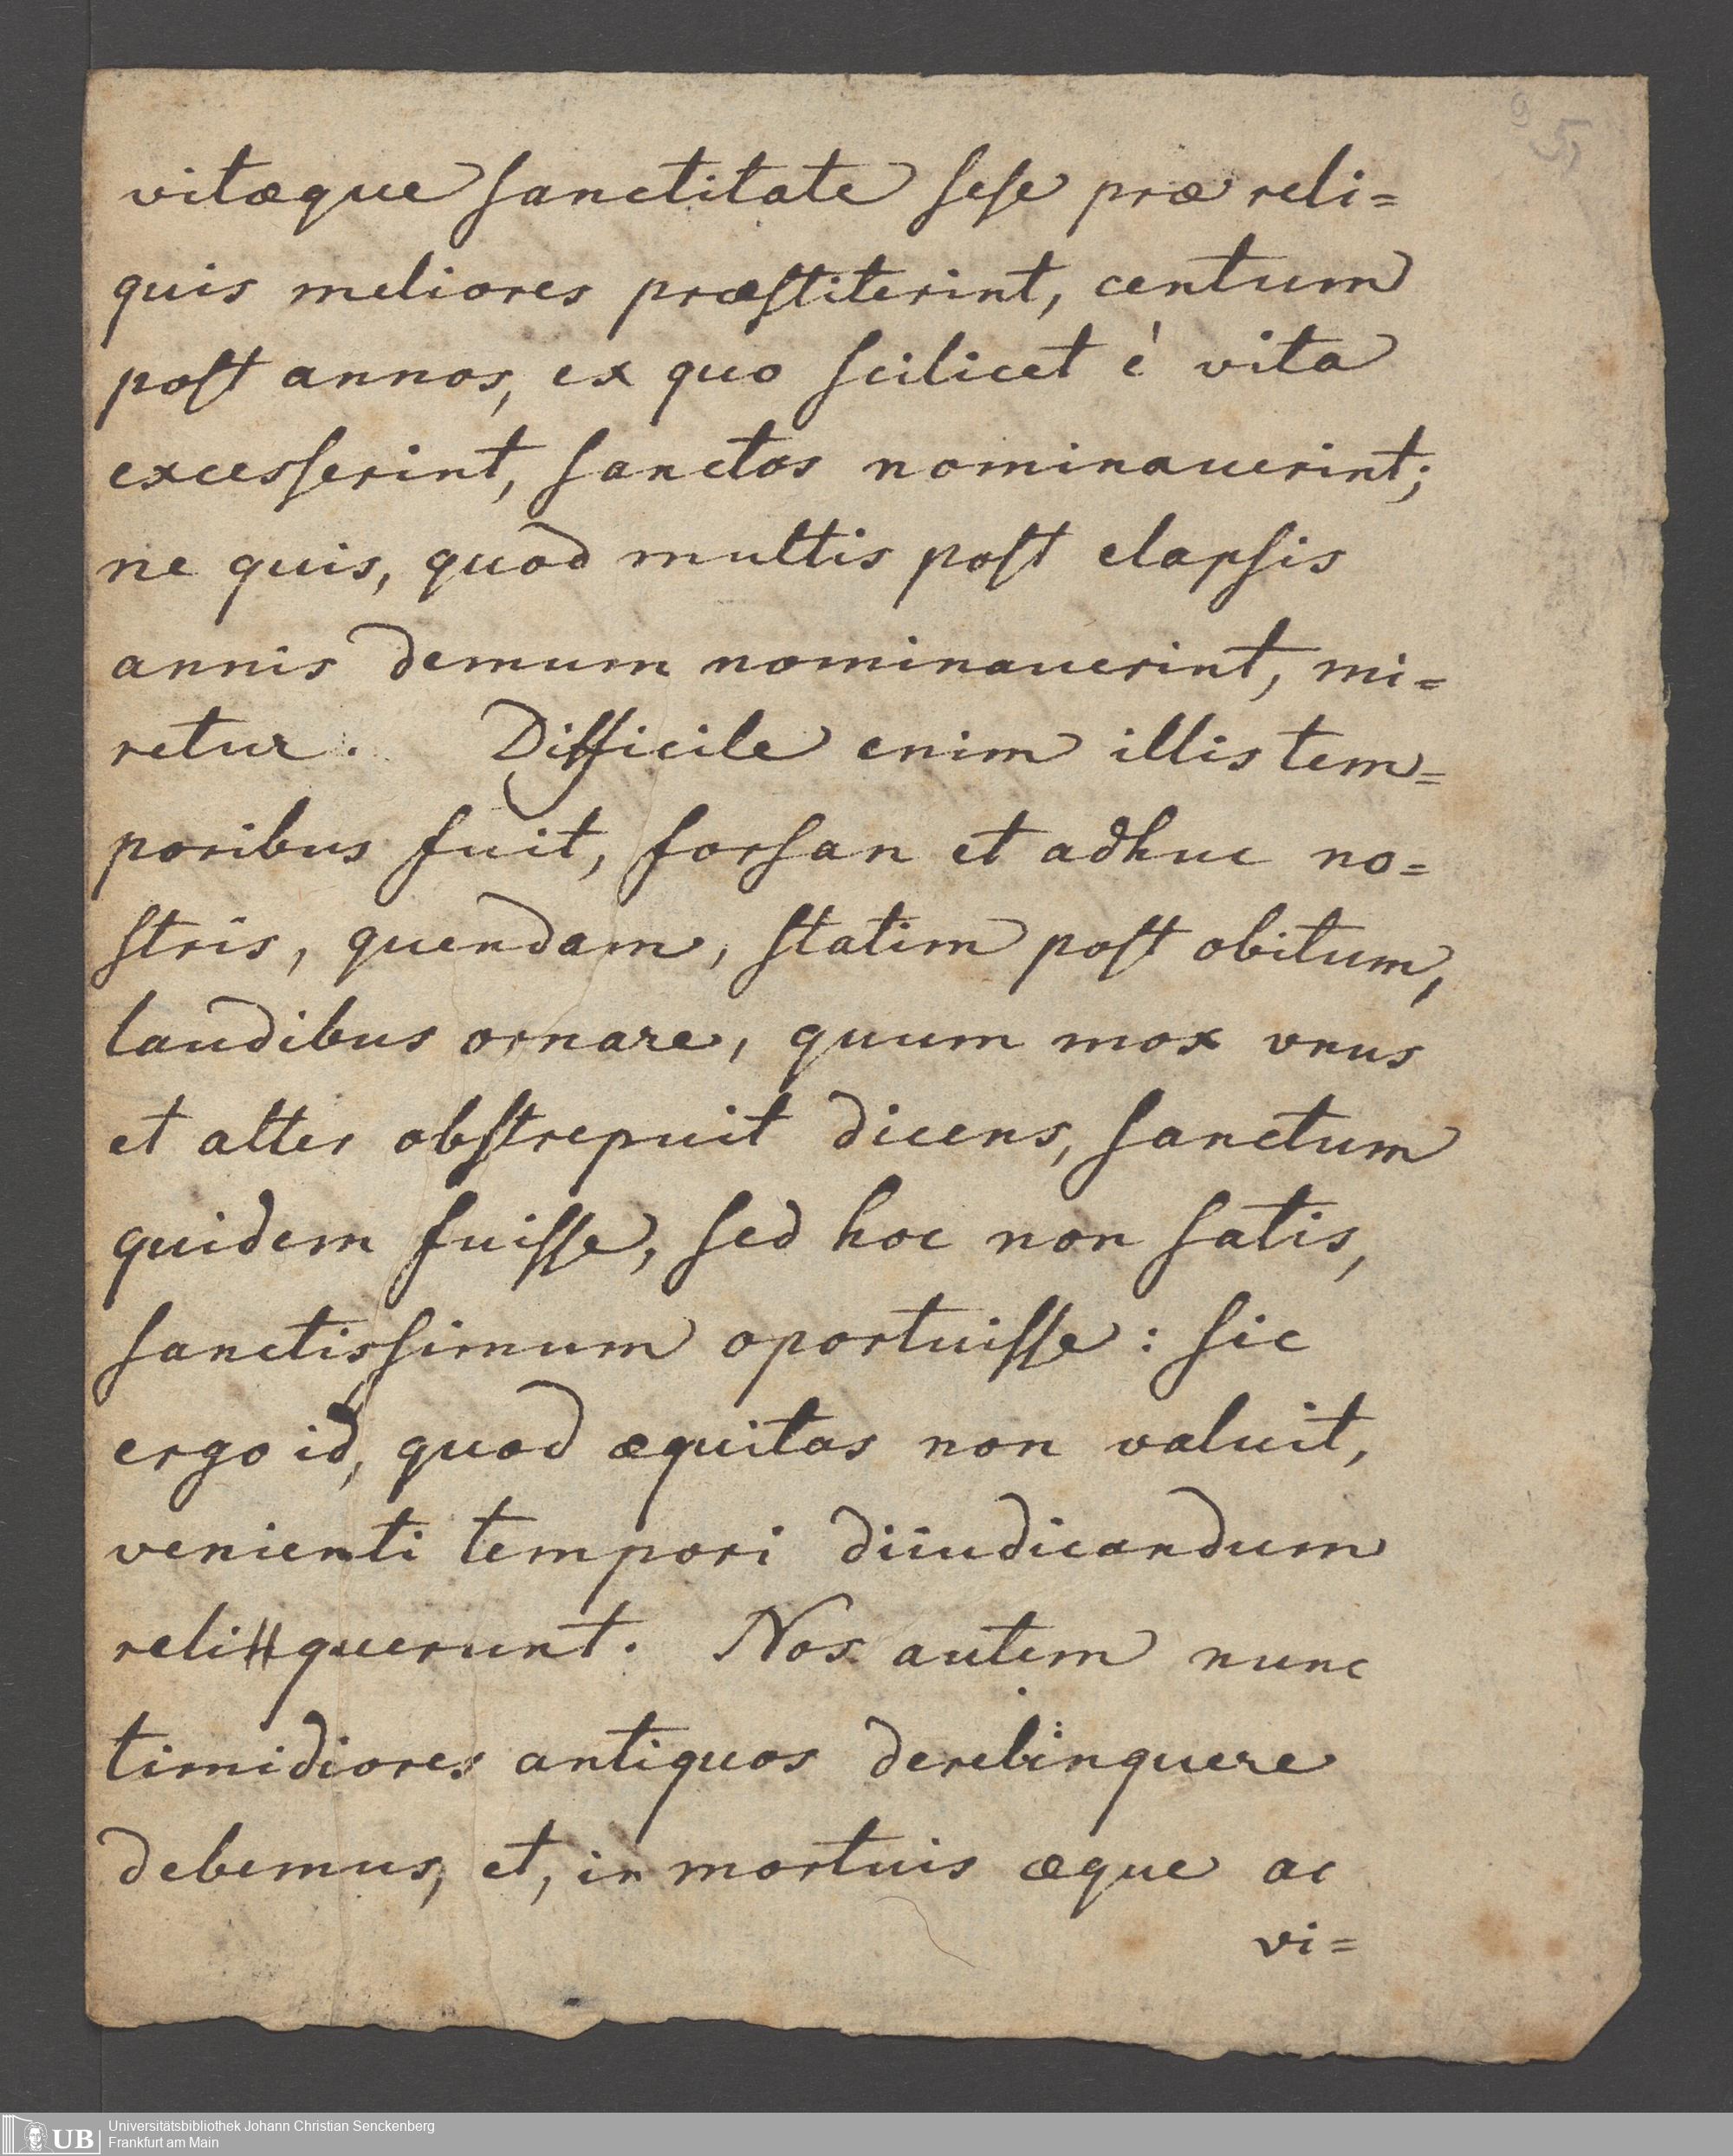 5
vitæque ſanctitate ſeſe præ reli=
quis meliores præſtiterint, centum
poſt annos, ex quo ſcilicet è vita
excesſerint, ſanctos nominauerint;
ne quis, quod multis poſt elapſis
annis demum nominauerint, mi=
retur. Difficile enim illis tem=
poribus fuit, forſan et adhuc no=
ſtris, quendam, ſtatim poſt obitum,
laudibus ornare, quum mox vnus
et alter obſtrepuit dicens, ſanctum
quidem fuiſſe, ſed hoc non ſatis,
ſanctisſimum oportuiſſe: ſic
ergo id, quod æquitas non valuit,
venienti tempori diiudicandum
reliquerunt. Nos autem nunc
timidiores antiquos derelinquere
debemus, et, in mortuis æque ac
vi=
UB
Universitätsbibliothek Johann Christian Senckenberg
Frankfurt am Main